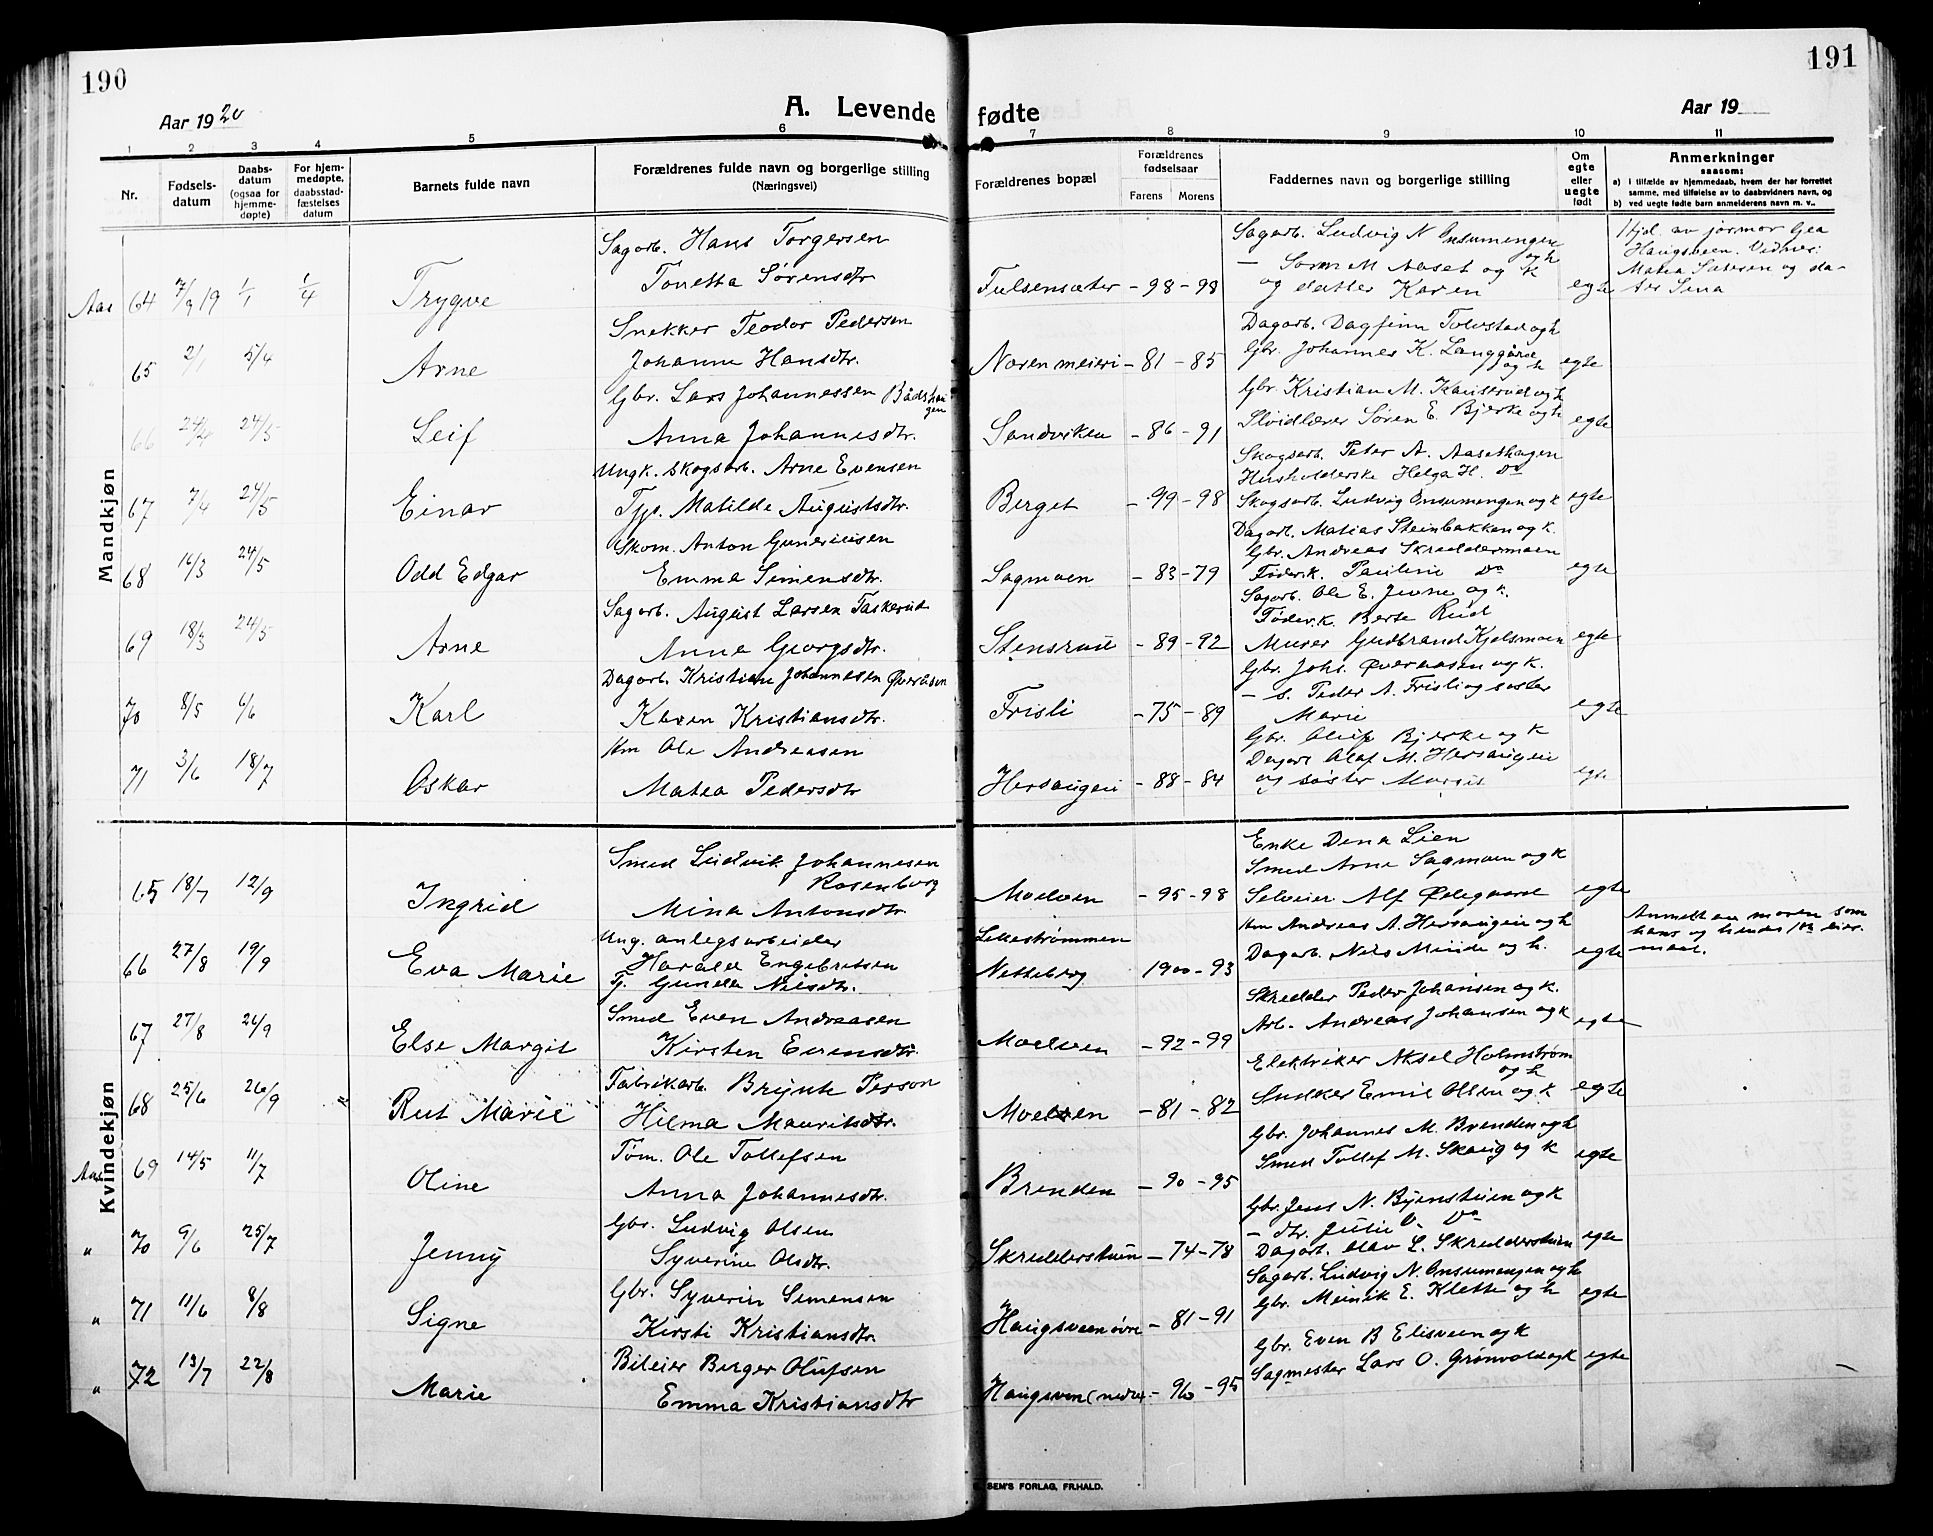 190
191
Aar 1920
A. Levende fødte
Aar 19
1 2 3 4 5 6 7 8 9 10 11
Nr.
Fødsels-
datum
Daabs-
datum
(ogsaa for
hjemme-
døpte)
For hjem-
medøpte,
daabsstad-
fæstelses
datum
Barnets fulde navn
Forældrenes fulde navn og borgerlige stilling
(Næringsvei)
Forældrenes bopæl
Forældrenes
fødselsaar
Farens Morens
Faddernes navn og borgerlige stilling
Om
egte
eller
uegte
født
Anmerkninger
saasom:
a) i tilfælde av hjemmedaab, hvem der har forrettet
samme, med tilføielse av to daabsvidners navn, og
b) ved uegte fødte barn anmelderens navn m. v..
Mandkjøn
Sagarb. Hans Torgersen
Aas 64 7/9 19 1/1 1/4 Trygve
Tonetta Sørensdtr
Fulsensæter - 98 - 98
Sagarb. Ludvig N Onsumengen
og h
— Søren M Aaset og k
og datter Karen
egte
Hjd. av jormor Gea
Haugsveen. Vidner:
Matea Sætesen og da-
ter Sina
Snekker Teodor Pedersen
65 2/1 5/4 Arne
Johanne Hansdtr.
Noren meieri - 81 - 85
Dagarb. Dagfinn Tolvstad og h
Gbr. Johannes K. Langgård
og h
egte
Gbr. Lars Johannessen Bådshau
gen
66 24/4 24/5 Leif
Anna Johannesdtr.
Sandviken - 86 - 91
Gbr. Kristian M. Kaustrud og h
Søren E. Bjerke og h
egte
Ungk. skogsarb. Arne Evensen
67 7/4 24/5 Einar
Tjp. Matilde Augustsdtr.
Berget - 99 - 98
Skogsarb. Peter A. Aasethagen
Husholderske Helga H. Do
Skogsarb. Ludvig Onsumengen og k
egte
Skom. Anton Gunerius en
68 16/3 24/5 Odd Edgar
Emma Simensdtr.
Sagmoen - 83 - 79
Dagarb. Matias Steinbakken og k.
Gbr. Andreas Skreddermoen
Føderk. Pauline Do
egte
Sagarb. August Larsen Taskerud
69 18/3 24/5 Arne
Anna Georgsdtr.
Stensrud - 89 - 92
Sagarb. Ole E. Jevne og k.
Føderk. Berte Rud
Murer Gudbrand Kjelsmoen
egte
Dagarb. Kristian Johannesen Øveraasen
70 8/5 6/6 Karl
Karen Kristiansdtr.
Frisli - 75 - 89
Gbr. Johs. Øveraasen og k.
— s. Peder A. Frisli og søster
Marie
egte
Um Ole Andreasen
71 3/6 18/7 Oskar
Matea Pedersdtr
Hersaugen - 88 - 84
Gbr. Oluf Bjerke og k
Dagarb Olaf M. Hersaugen
og søster Margit
egte
Kvindekjøn
Smed Ludvik Johannesen
Rosenborg
65 18/7 12/9 Ingrid
Mina Antonsdtr.
Moelven - 95 - 98
Enke Dena Lien
Smed Arne Sagmoen og k
Selveier Alf Ødegaard
egte
Ung. anlegsarbeider
66 27/8 19/9 Eva Marie
Harald Engebretsen
Tj. Gunda Nilsdtr.
Lillestrømmen
Netteberg 1900 - 93
Um Andreas A. Hersaugen og h
Dagarb. Nils Minde og h.
egte
Anmelt av moren som
hans og hendes
Smed Even Andreasen
67 27/8 26/9 Else Margit
Kirsten Evensdtr.
Moelven - 92 - 99
Skredder Peder Johansen og k.
Arb. Andreas Johansen og k
egte
Fabrikarb. Brynte Person
68 25/6 26/9 Rut Marie
Hilma Mauritsdtr.
Moelven - 81 - 82
Elektriker Aksel Holmstrøm
og h
Snekker Emil Olsen og k
egte
Tøm. Ole Tollefsen
Aas 69 14/5 11/7 Oline
Anna Johannesdtr.
Brenden - 90 - 95
Gbr. Johannes M. Brenden og h
Smed Tollef M. Skaug og k
egte
Gbr. Ludvig Olsen
" 70 9/6 25/7 Jenny
Syverine Olsdtr.
Skredderstuen - 74 - 78
Gbr. Jens N. Byenstuen og k
— dtr. Julie Do
Dagarb. Olav L. Skredderstuen
egte
Gbr. Syverin Simensen
" 71 11/6 8/8 Signe
Kirsti Kristiansdtr
Haugsveen øvre - 81 - 91
Sagarb. Ludvig N. Onsumengen og h
Gbr. Meinik E. Klette og h
egte
Bileier Birger Olufsen
" 72 13/7 22/8 Marie
Emma Kristiansdtr
Haugsven (nedre - 96 - 95
Gbr. Even B Elisveen og k
Sagmester Lars O. Grønvold og k
egte
SEM'S FORLAG, FR.HALD.